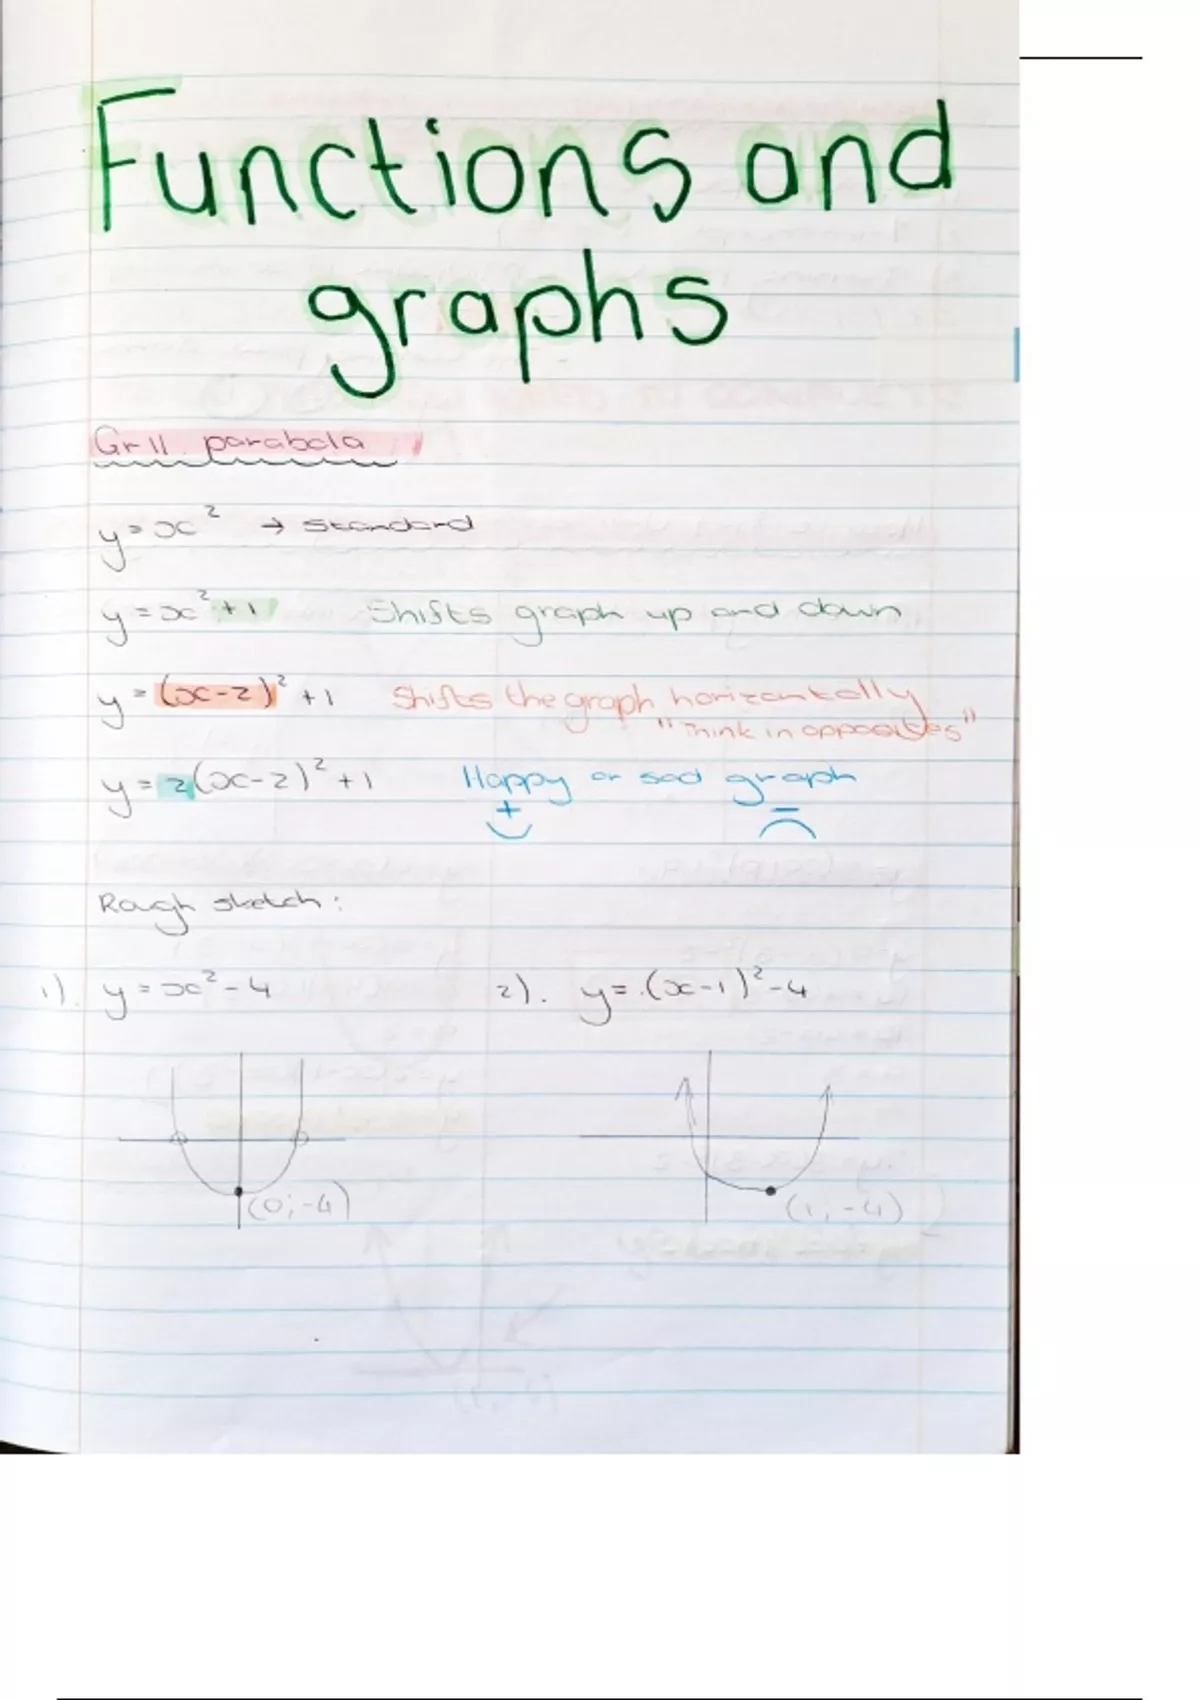 Functions and
graphs
Gr 11 parabola
y = x² → standard
y = x² + 1 Shifts graph up and down
y = (x-2)² + 1 Shifts the graph horizontally
"Think in opposites"
y = 2(x-2)² + 1 Happy or sad graph
+ −
Rough sketch:
1). y = x² - 4 2). y = (x-1)² - 4
(0;-4) (1;-4)